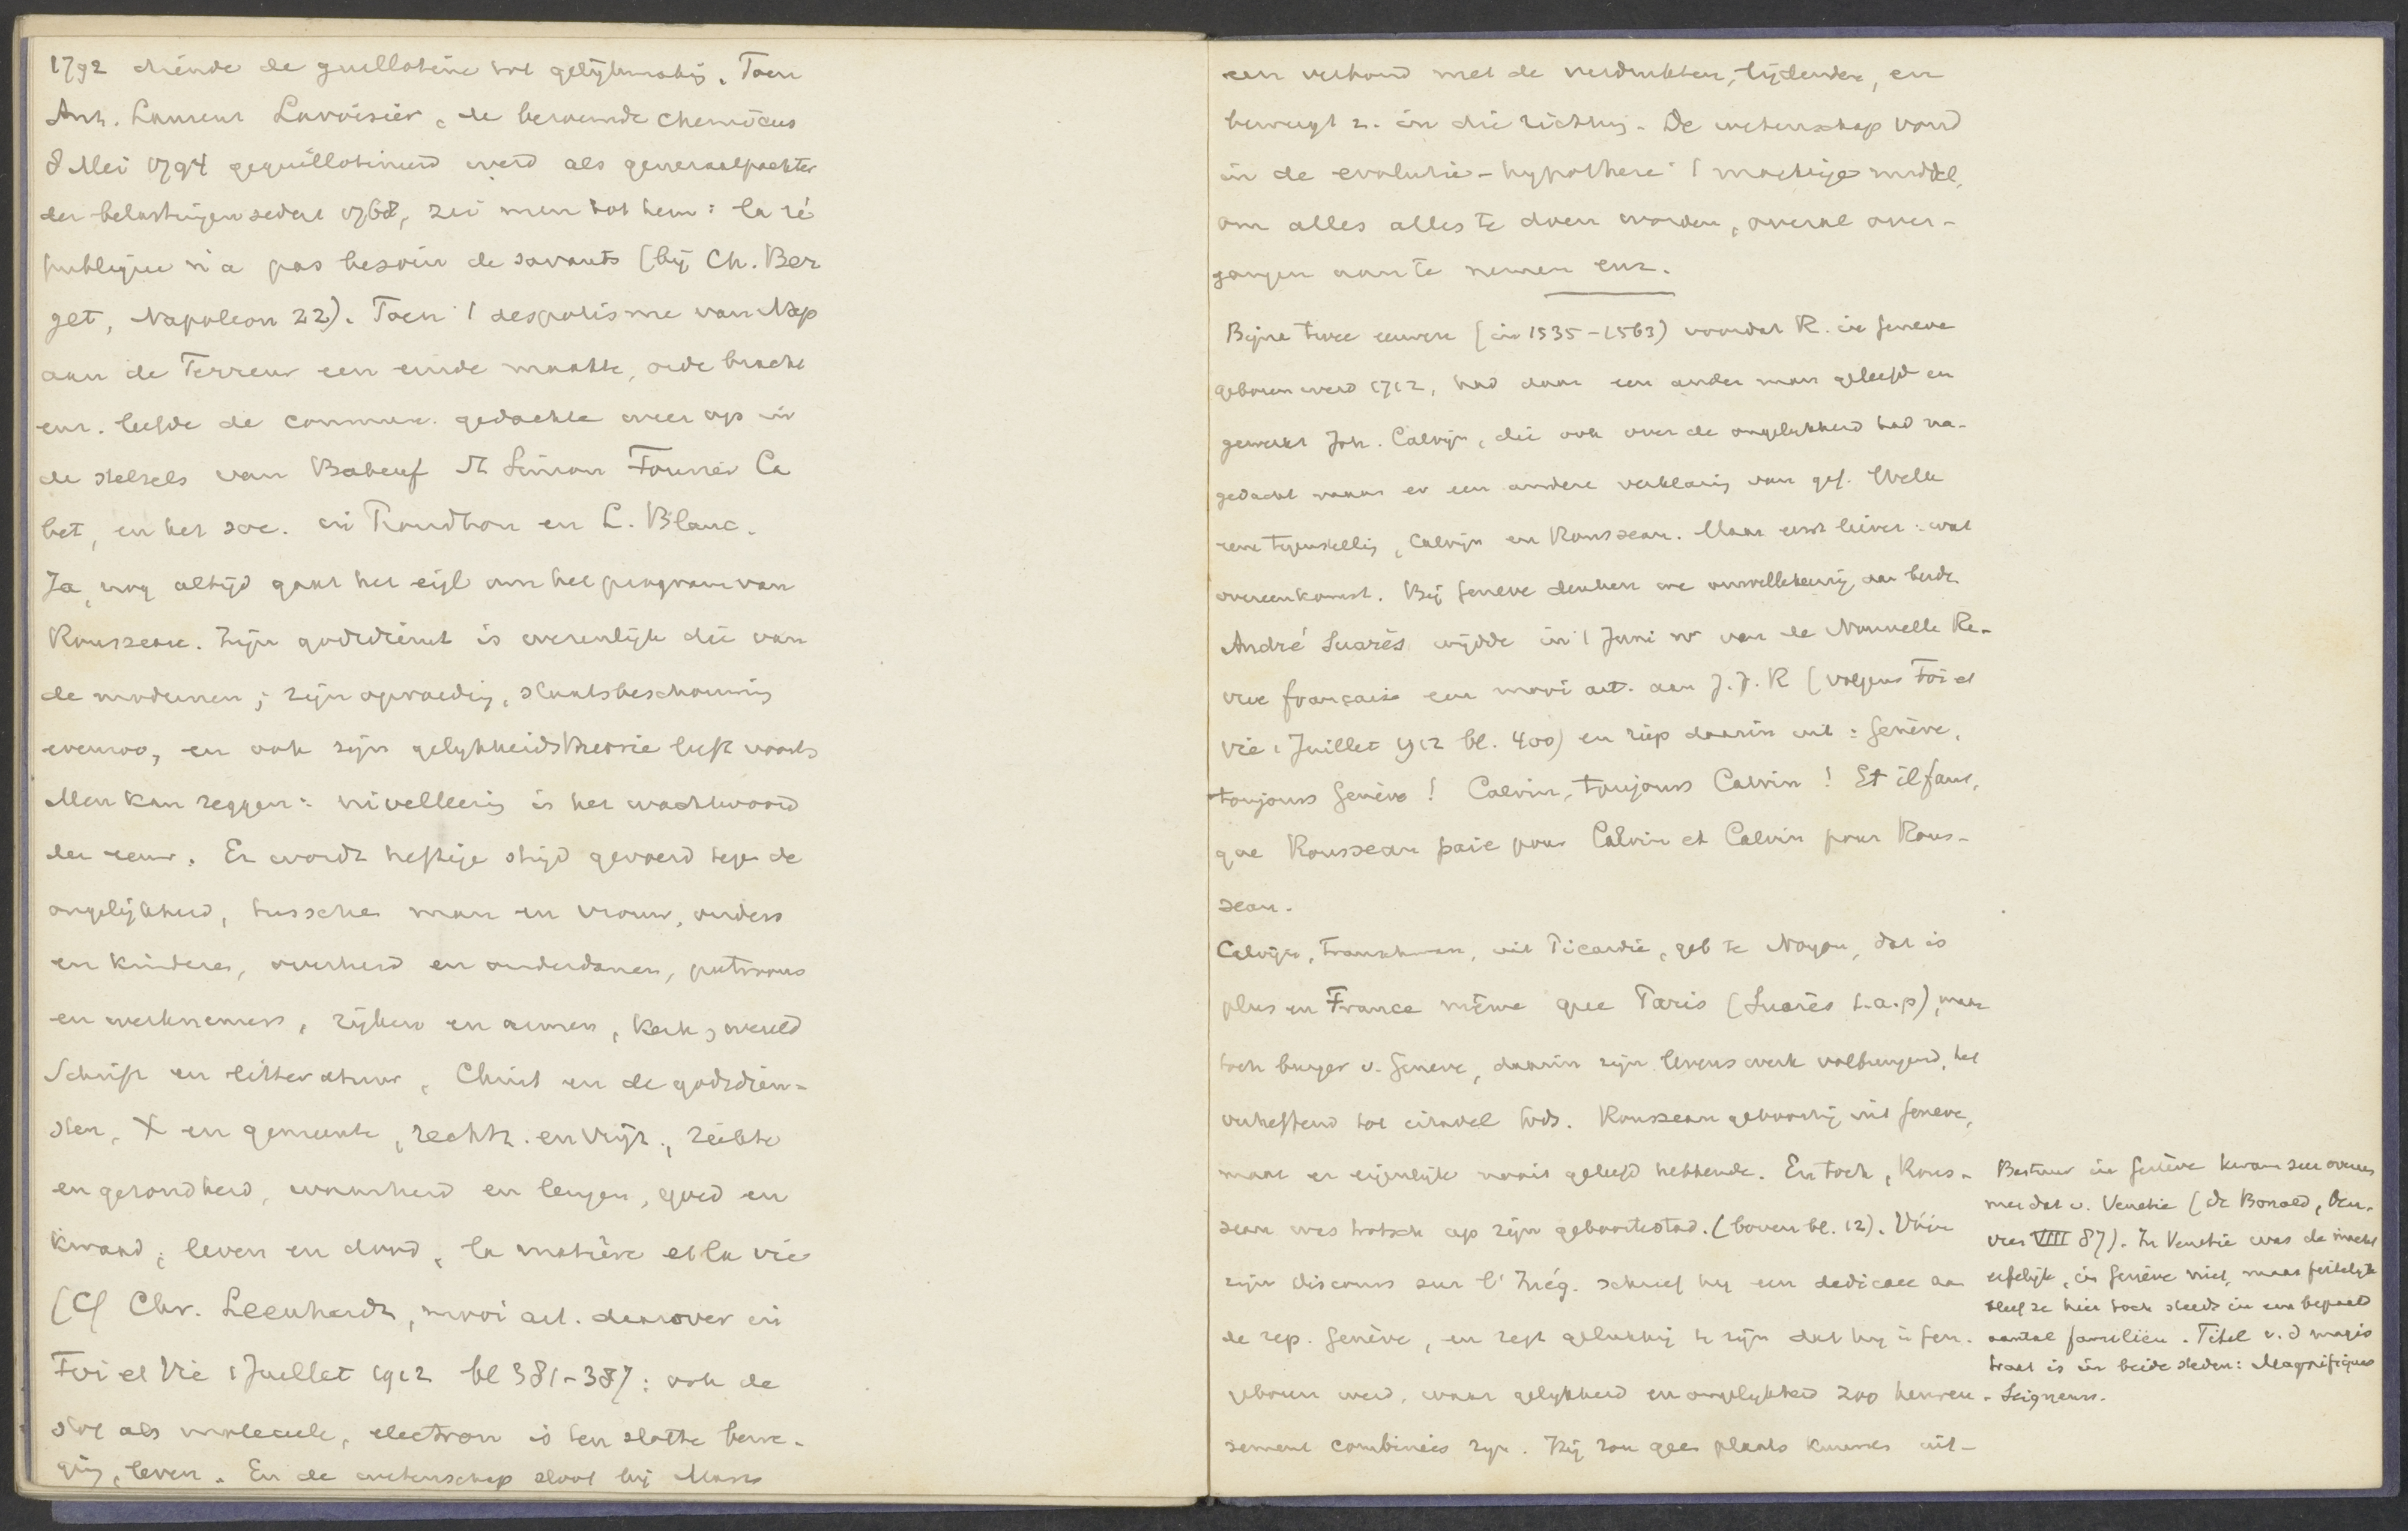 1792 diende de guillotine tot gelijkmaking. Toen
Ant. Laurent Lavoisier, de beroemde chemicus
8 Mei 1794 geguillotineerd werd als generaalpachter
der belastingen sedert 1768, zei men tot hem: la ré
publique n'a pas besoin de savants (bij Ch. Ber
get, Napoleon 22). Toen 't despotisme van Nap
aan de Terreur een einde maakte, orde bracht
enz. leefde de commun. gedachte weer op in
de stelsels van Babeuf St Simon Fourier Ca
bet, en het soc. in Proudhon en L. Blanc.
Ja, nog altijd gaat het eigl om het program van
Rousseau. Zijn godsdienst is wezenlijk die van
de modernen; zijn opvoeding, staatsbeschouwing
evenzoo, en ook zijn gelijkheidstheorie leeft voort
Men kan zeggen: nivelleering is het wachtwoord
der eeuw. Er wordt heftige strijd gevoerd tegen de
ongelijkheid, tusschen man en vrouw, ouders
en kinderen, overheid en onderdanen, patroons
en werknemers, rijken en armen, kerk, wereld
Schrift en litteratuur, Christ en de godsdien-
sten, X en gemeente, rechtz. en vrijz., ziekte
en gezondheid, waarheid en leugen, goed en
kwaad, leven en dood, la matière et la vie
(Cf Chr. Leenhardt, mooi art. daarover in
Foi et Vie 1 Juillet 1912 bl 381-387: ook de
stof als molecule, electron is ten slotte bewe-
ging, leven. En de wetenschap sloot bij Marx
een verbond met de verdrukten, lijdenden, en
beweegt z. in die richting. De wetenschap vond
in de evolutie-hypothese 't machtige middel,
om alles alles te doen worden, overal over-
gangen aan te nemen enz.
Bijna twee eeuwen (in 1535-1563) voordat R. in Geneve
geboren werd 1712, had daar een ander man geleefd en
gewerkt Joh. Calvijn, die ook over de ongelijkheid had na-
gedacht maar er een andere verklaring van gaf. Welk
eene tegenstelling, Calvijn en Rousseau. Maar eerst liever: wat
overeenkomst. Bij Geneve denken we onwillekeurig aan beide
André Suarès wijdde in 't Juni nr van de Nouvelle Re-
vue française een mooi art. aan J. J. R (volgens Foi et
Vie 1 Juillet 1912 bl. 400) en riep daarin uit: Genève,
toujours Genève! Calvin, toujours Calvin! Et il faut,
que Rousseau paie pour Calvin et Calvin pour Rous-
seau.
Calvijn, Franschman, uit Picardie, geb te Noyon, dat is
plus en France même que Paris (Suarès t.a.p), maar
toch burger v. Geneve, daarin zijn levenswerk volbrengend, het
verheffend tot citadel Gods. Rousseau geboortig uit Geneve,
maar er eigenlijk nooit geleefd hebbende. En toch, Rous-
seau was trotsch op zijn geboortestad. (boven bl. 12). Vóór
zijn Discours sur l'Inég. schreef hij een dedicace aan
de rep. Genève, en zegt gelukkig te zijn dat hij in Gen.
geboren werd, waar gelijkheid en ongelijkheid zoo heureu-
sement combinées zijn. Hij zou geen plaats kunnen uit-
Bestuur in Genève kwam zeer overeen
met dat v. Venetie (de Bonald, Oeu-
vres VIII 87). In Venetie was de macht
erfelijk, in Genève niet, maar feitelijk
bleef ze hier toch steeds in een bepaald
aantal familiën. Titel v. d magis
traat is in beide steden: Magnifiques
Seigneurs.